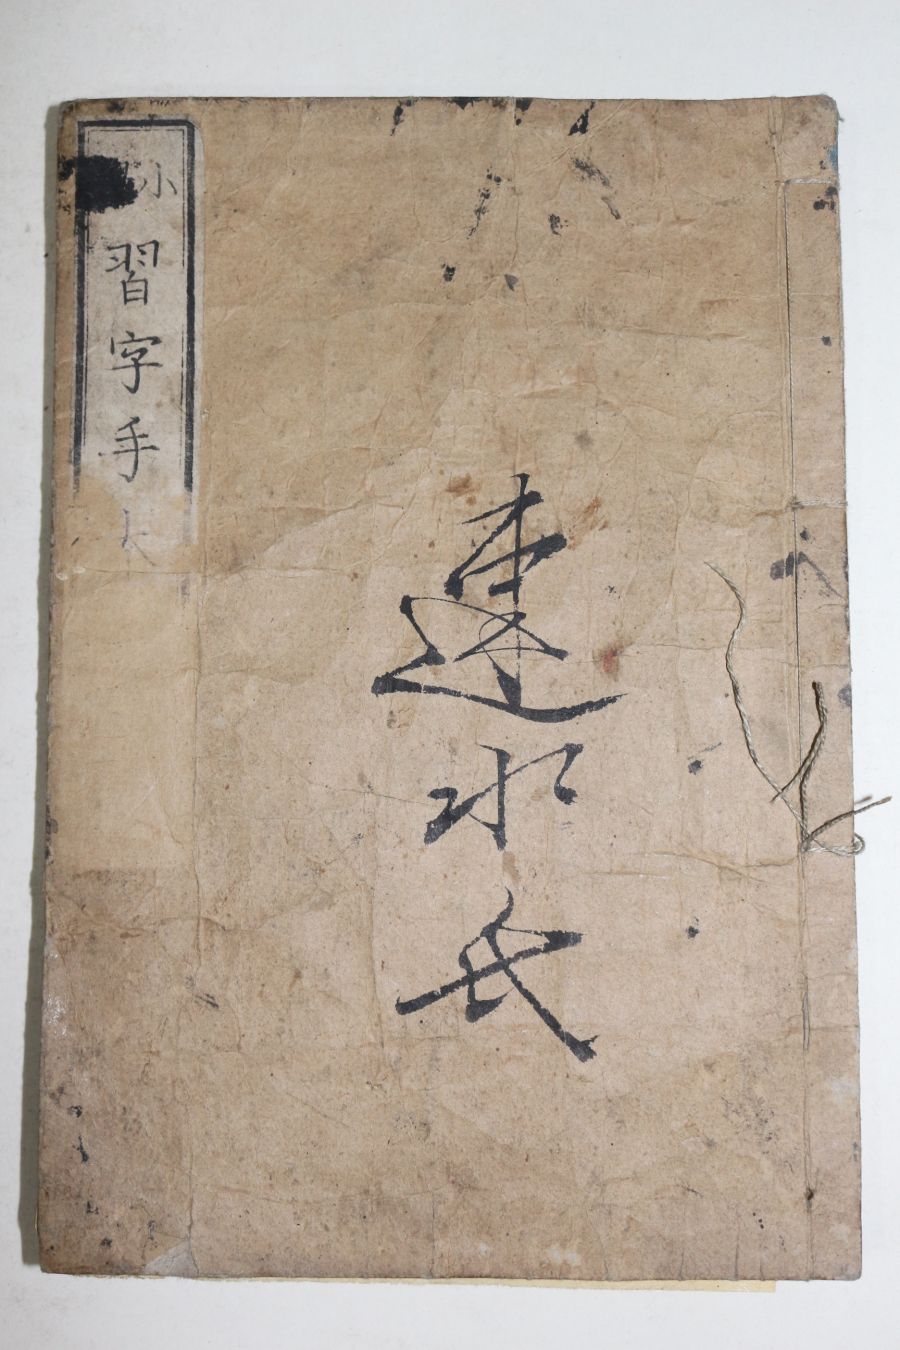 小 習字手
速水氏